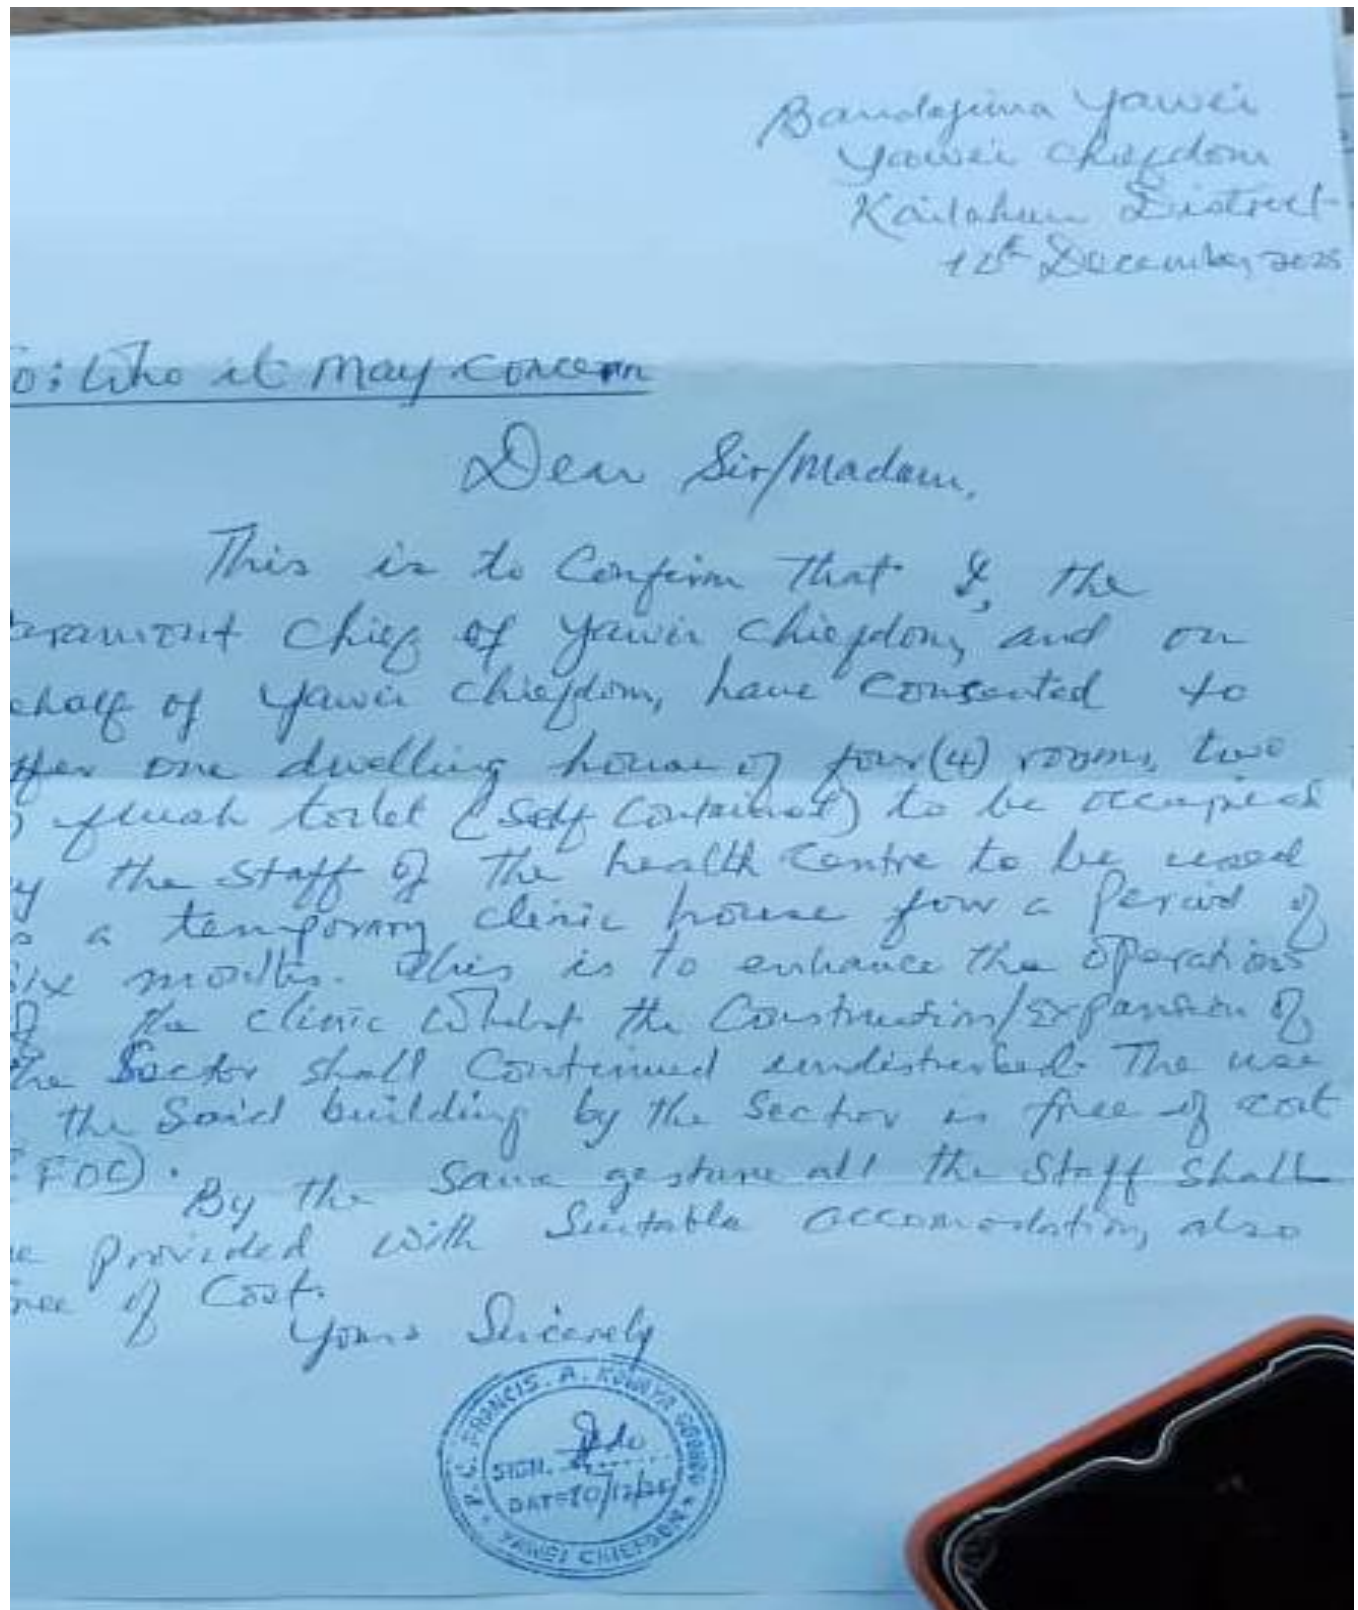 Bandajuma Yawei
Yawei Chiefdom
Kailahun District
10th December, 2025
o: Who it May Concern
Dear Sir/Madam,
This is to Confirm that I, the
aramount Chief of Yawei Chiefdom, and on
ehalf of Yawei Chiefdom, have Consented to
ffer one dwelling house of four (4) rooms, two
) flush toilet (Self Contained) to be occupied
y the Staff of the health Centre to be used
s a temporary clinic house four a Period of
ix months. This is to enhance the operations
of the clinic Whilst the Construction/Expansion of
the Sector shall Continued undisturbed. The use
the Said building by the Sector is free of cost
(FOC). By the same gesture all the Staff Shall
e provided with Suitable accomodation, also
ree of Cost.
Yours Sincerely
P.C. FRANCIS. A. KOWAYA
SIGN.
DATE 10/12/25
YAWEI CHIEFDOM